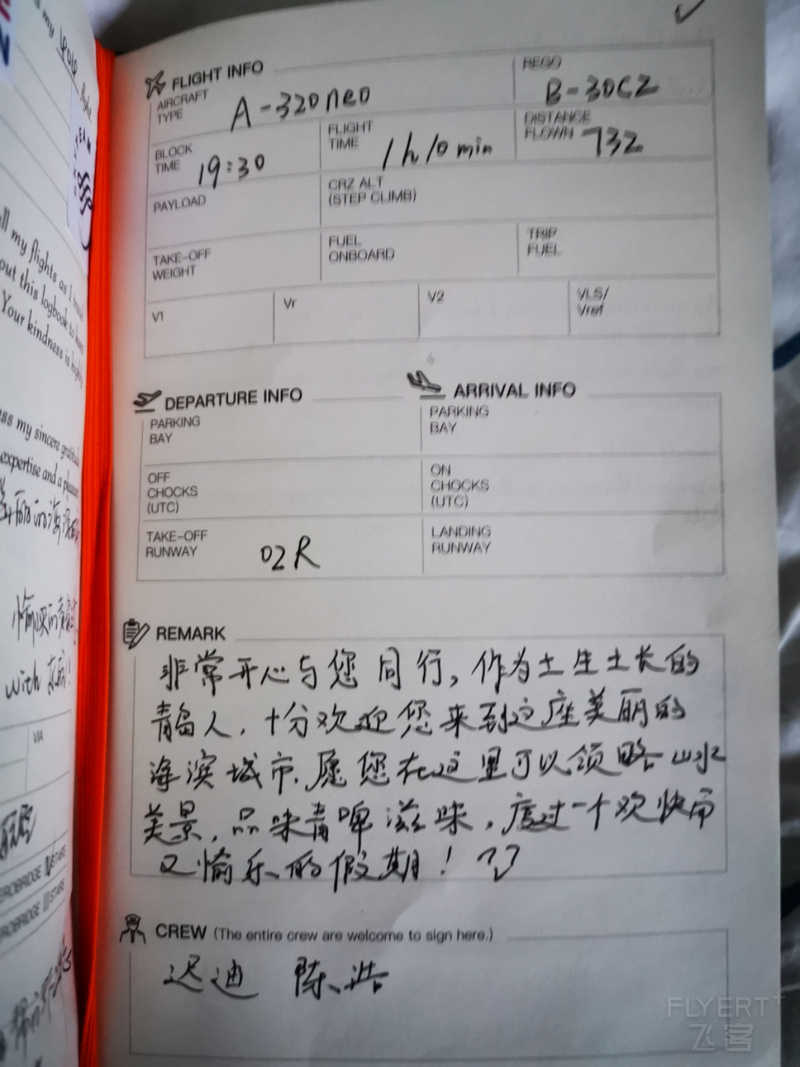 all my flights as I travel
out this logbook to keep
Your kindness is highly
ess my sincere gratitude
expertise and a pleasant
with
VIA
EROBRIDGE STAIRS
EROBRIDGE STAIRS
FLIGHT INFO
AIRCRAFT TYPE A-320neo
REGO B-30CZ
BLOCK TIME 19:30
FLIGHT TIME 1h10min
DISTANCE FLOWN 732
PAYLOAD
CRZ ALT (STEP CLIMB)
TAKE-OFF WEIGHT
FUEL ONBOARD
TRIP FUEL
V1
Vr
V2
VLS/ Vref
DEPARTURE INFO
ARRIVAL INFO
PARKING BAY
PARKING BAY
OFF CHOCKS (UTC)
ON CHOCKS (UTC)
TAKE-OFF RUNWAY 02R
LANDING RUNWAY
REMARK
非常开心与您同行,作为土生土长的
青岛人,十分欢迎您来到这座美丽的
海滨城市.愿您在这里可以领略山水
美景,品味青啤滋味,度过一个欢快而
又愉乐的假期!
CREW (The entire crew are welcome to sign here.)
迟迪 陈浩
FLYERT
飞客